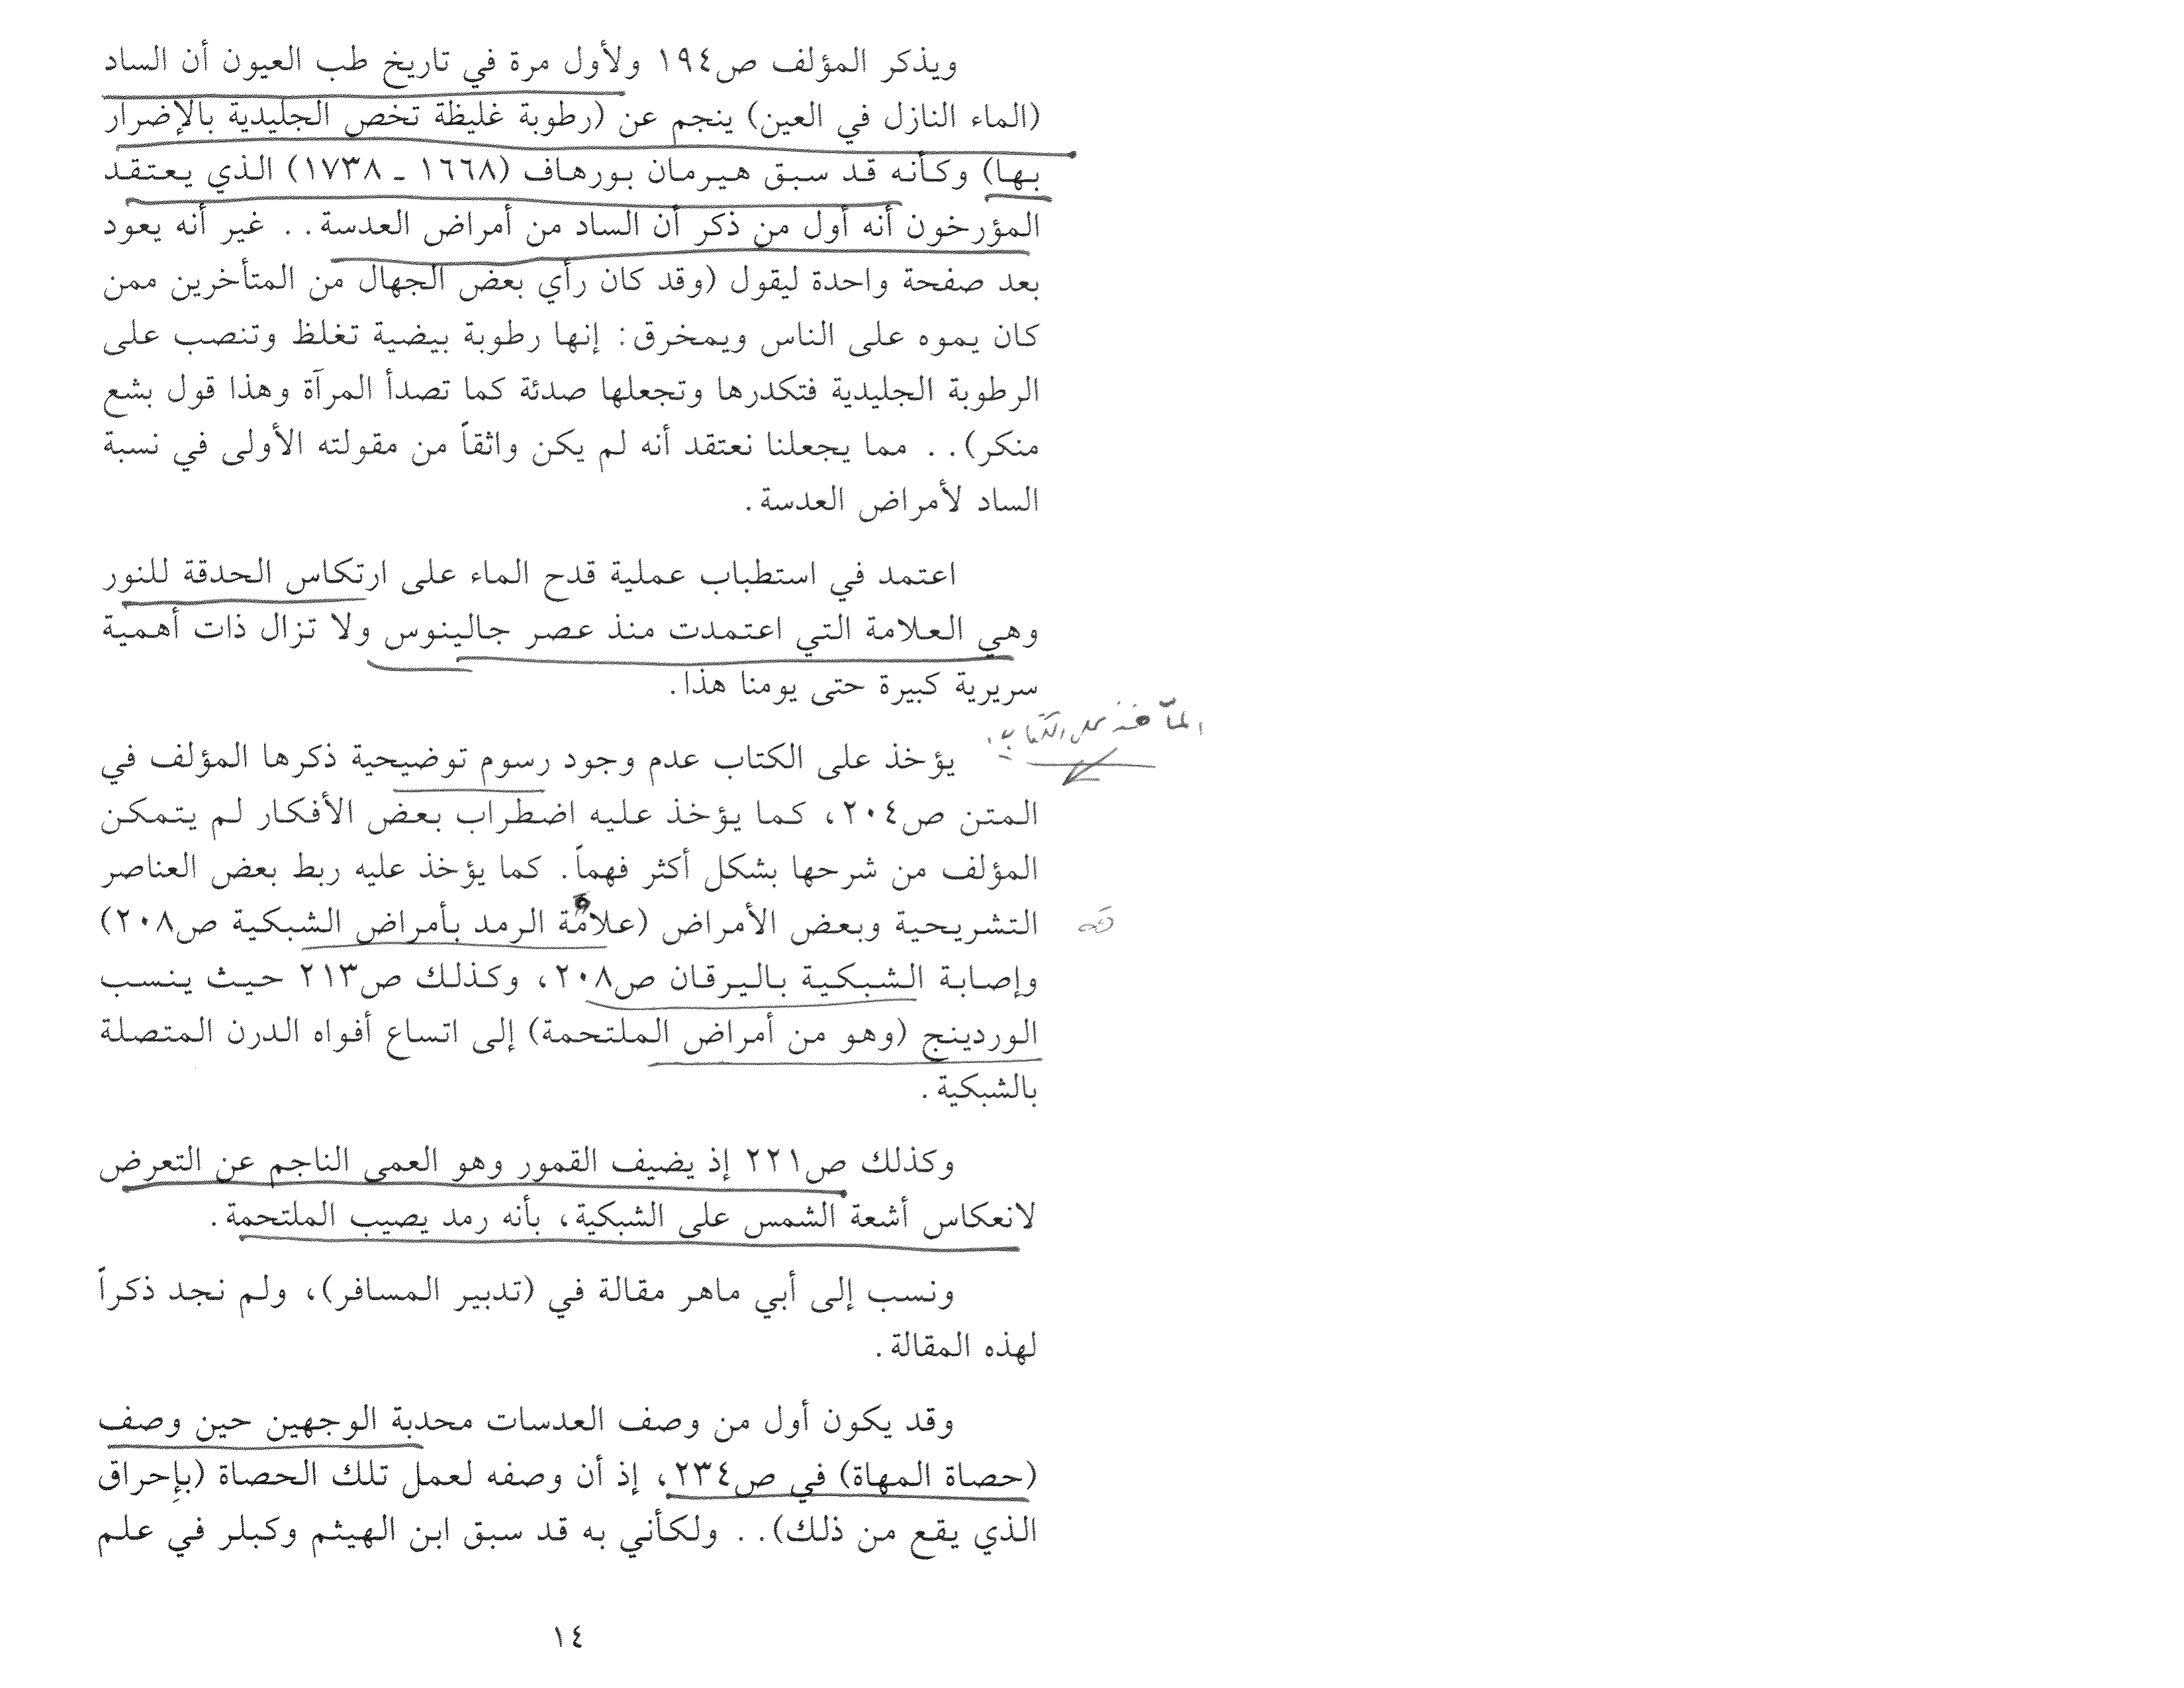 ويذكر المؤلف ص١٩٤ ولأول مرة في تاريخ طب العيون أن الساد
(الماء النازل في العين) ينجم عن (رطوبة غليظة تخص الجليدية بالإضرار
بها) وكأنه قد سبق هيرمان بورهاف (١٦٦٨ - ١٧٣٨) الذي يعتقد
المؤرخون أنه أول من ذكر أن الساد من أمراض العدسة.. غير أنه يعود
بعد صفحة واحدة ليقول (وقد كان رأي بعض الجهال من المتأخرين ممن
كان يموه على الناس ويمخرق: إنها رطوبة بيضية تغلظ وتنصب على
الرطوبة الجليدية فتكدرها وتجعلها صدئة كما تصدأ المرآة وهذا قول بشع
منكر).. مما يجعلنا نعتقد أنه لم يكن واثقاً من مقولته الأولى في نسبة
الساد لأمراض العدسة.
اعتمد في استطباب عملية قدح الماء على ارتكاس الحدقة للنور
وهي العلامة التي اعتمدت منذ عصر جالينوس ولا تزال ذات أهمية
سريرية كبيرة حتى يومنا هذا.
على الكتاب
يؤخذ على الكتاب عدم وجود رسوم توضيحية ذكرها المؤلف في
المتن ص٢٠٤، كما يؤخذ عليه اضطراب بعض الأفكار لم يتمكن
المؤلف من شرحها بشكل أكثر فهماً. كما يؤخذ عليه ربط بعض العناصر
التشريحية وبعض الأمراض (علامة الرمد بأمراض الشبكية ص٢٠٨)
وإصابة الشبكية باليرقان ص٢٠٨، وكذلك ص٢١٣ حيث ينسب
الوردينج (وهو من أمراض الملتحمة) إلى اتساع أفواه الدرن المتصلة
بالشبكية.
وكذلك ص٢٢١ إذ يضيف القمور وهو العمى الناجم عن التعرض
لانعكاس أشعة الشمس على الشبكية، بأنه رمد يصيب الملتحمة.
ونسب إلى أبي ماهر مقالة في (تدبير المسافر)، ولم نجد ذكراً
لهذه المقالة.
وقد يكون أول من وصف العدسات محدبة الوجهين حين وصف
(حصاة المهاة) في ص٢٣٤، إذ أن وصفه لعمل تلك الحصاة (بإحراق
الذي يقع من ذلك).. ولكأني به قد سبق ابن الهيثم وكبلر في علم
١٤